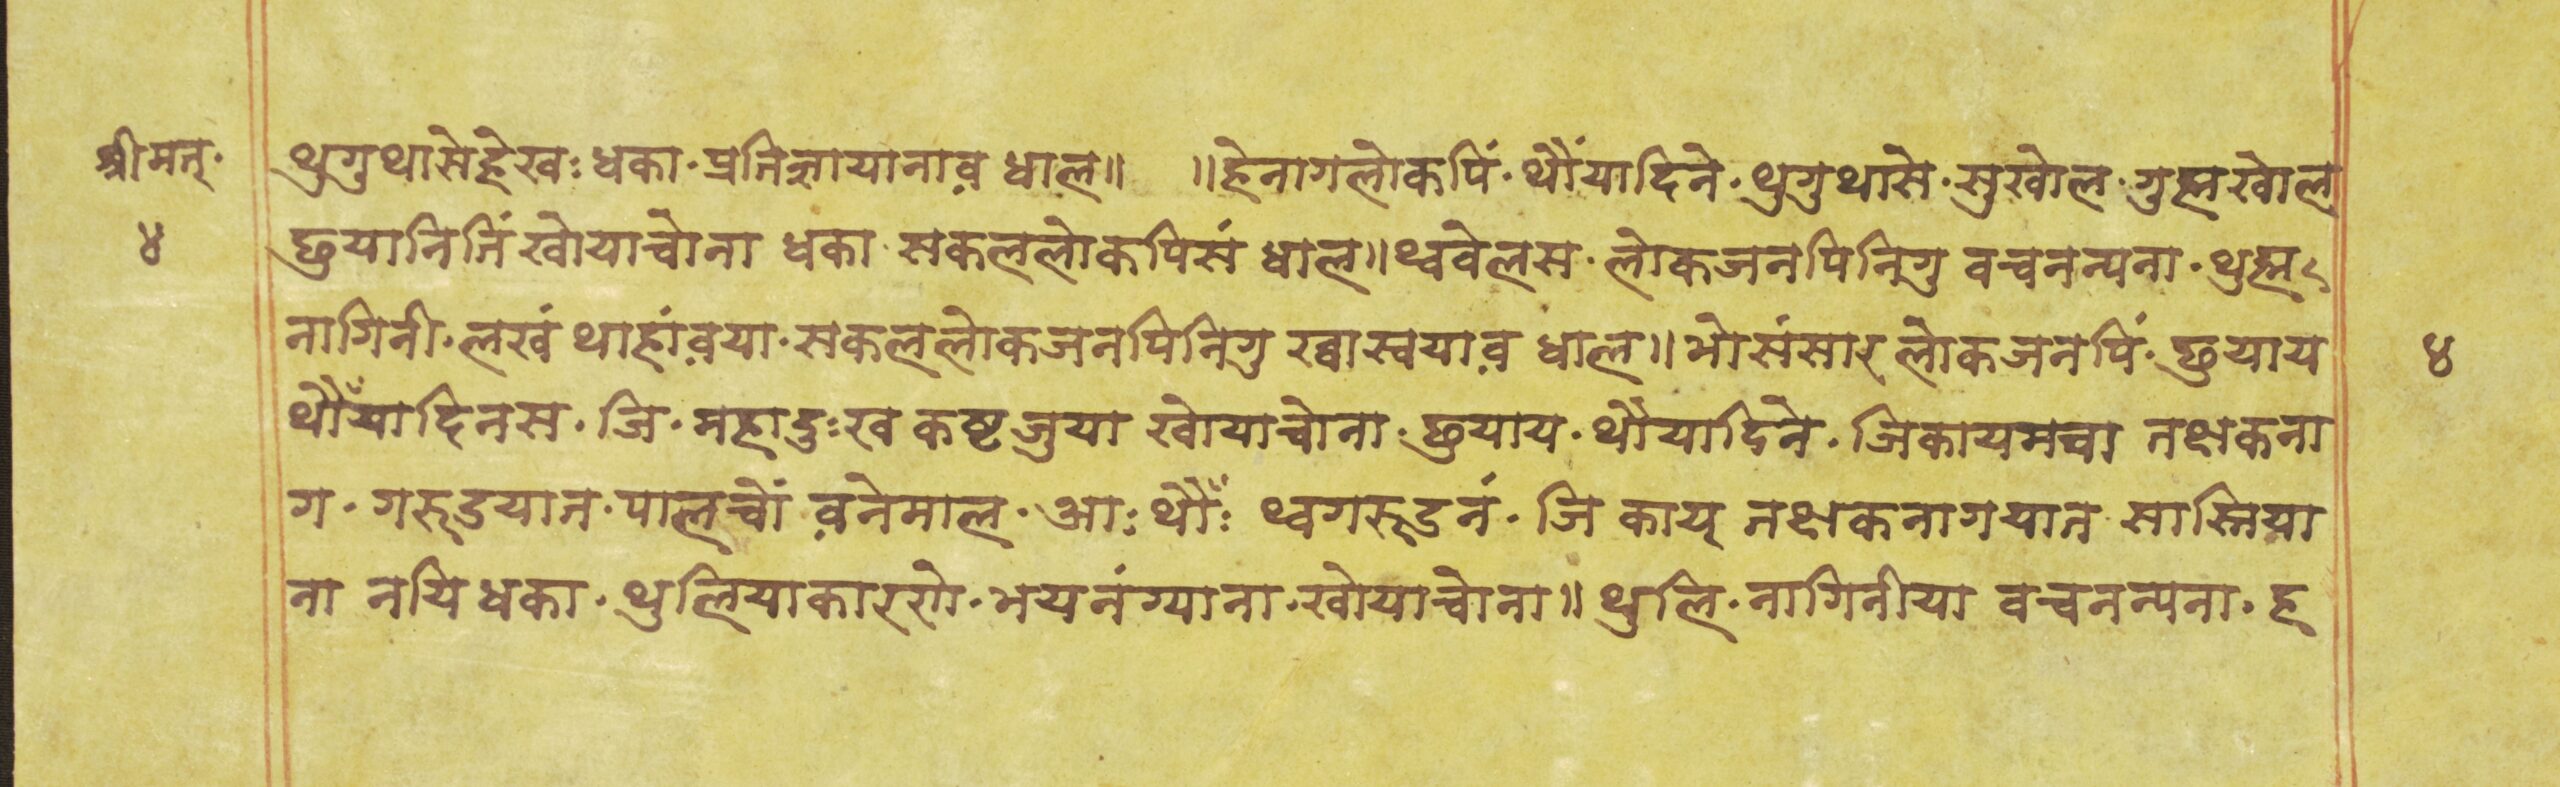 श्रीमत्·
४
थुगुथासेहेखः धका·प्रतिज्ञायानाव़ धाल॥ ॥हेनागलोकपिं·थौंयादिने·थुगुथासे·सुखोल·गुह्मखोल
छुयानितिंखोयाचोना धका·सकललोकपिसं धाल॥थ्ववेलस·लोकजनपिनिगु वचनन्यना·थुह्म
नागिनी·लखं थाहांव़या·सकललोकजनपिनिगु ख्वास्वयाव़ धाल॥भोसंसार लोकजनपिं·छुयाय
४
थौंयादिनस·जि·महादुःख कष्टजुया खोयाचोना·छुयाय·थौंयादिने·जिकायमचा तक्षकना
ग·गरूडयात·पालचों व़नेमाल·आः थौंः थ्वगरूडनं·जि काय् तक्षकनागयात सास्तिया
ना नयिधका·थुलियाकारणे·भयनंग्याना·खोयाचोना॥थुलि·नागिनीया वचनन्यना·ह